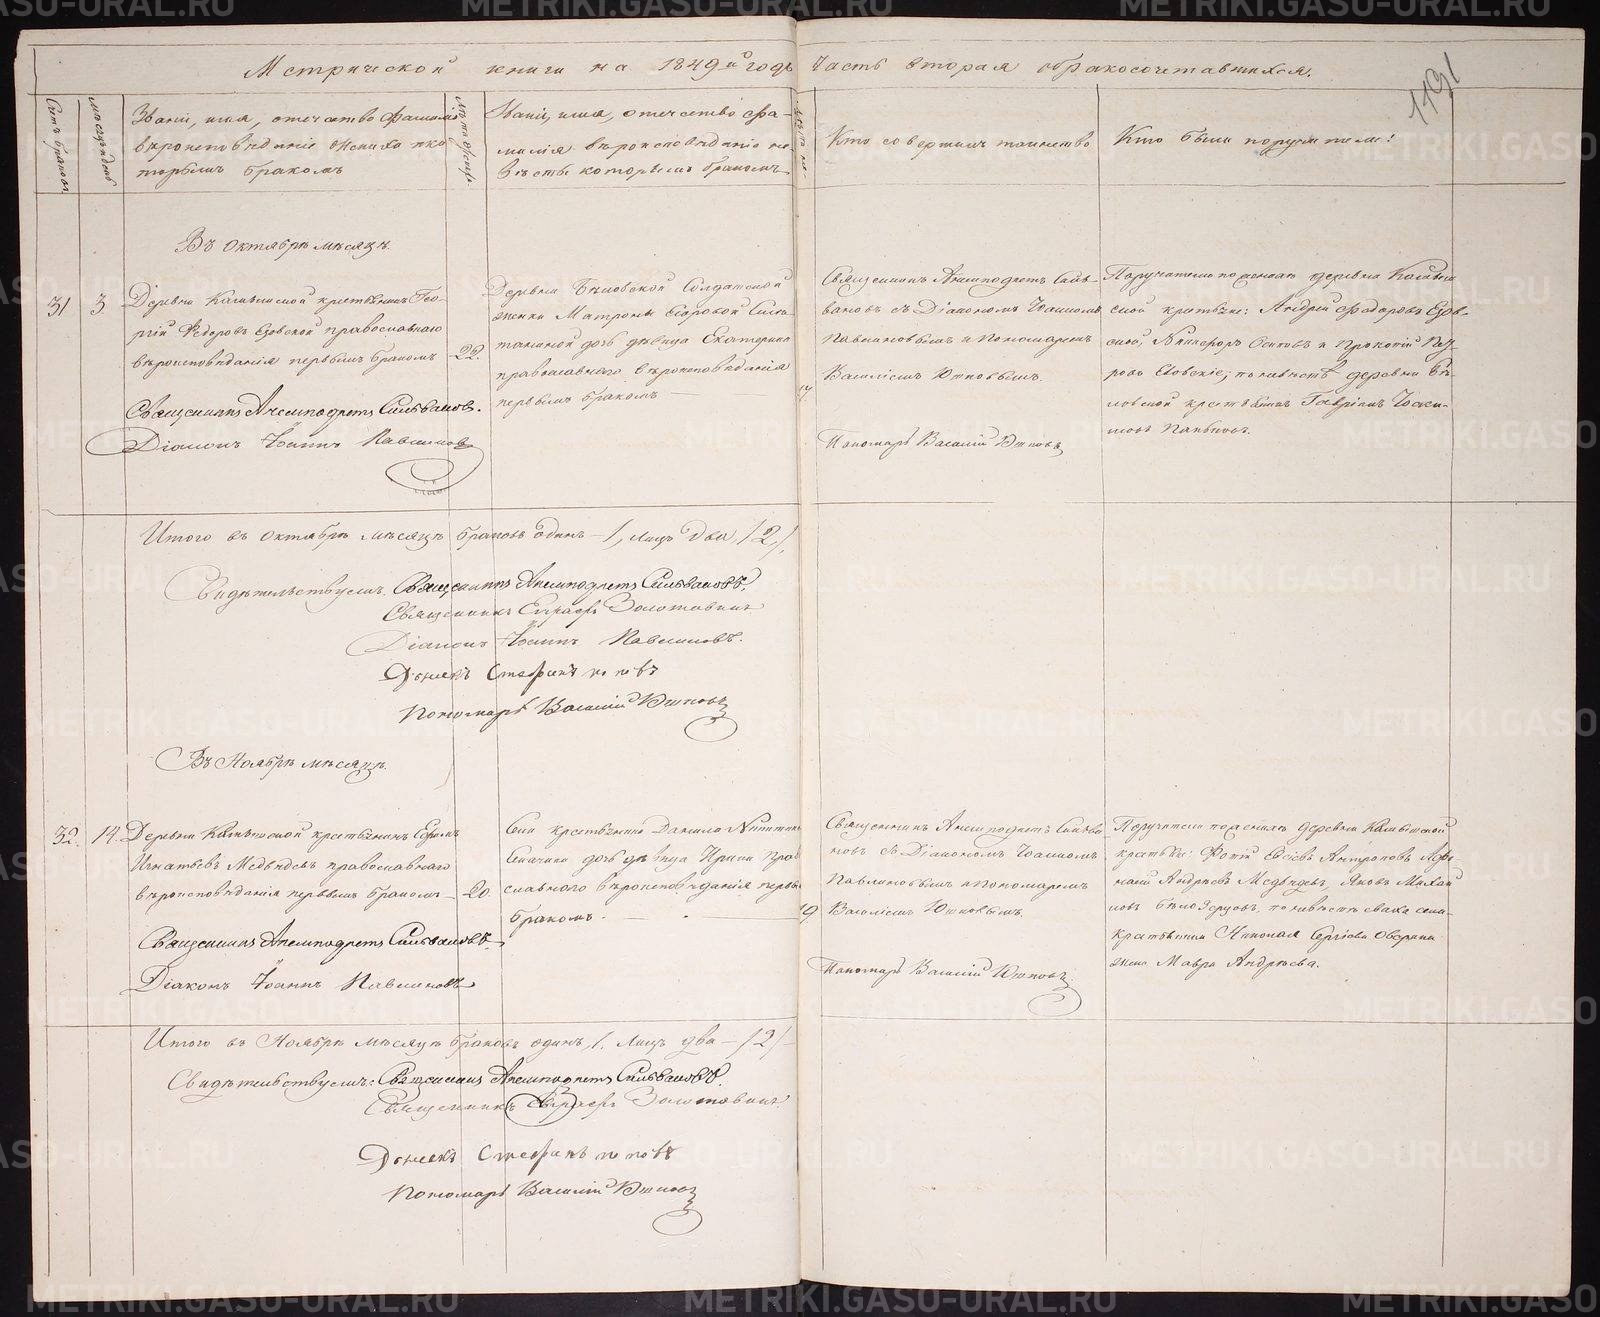 Метрической книги на 1849й годъ Часть вторая о бракосочетавшихся.
1191
Счетъ браковъ.
Мѣсяцъ и день
Званіе, имя, отчество, фамилія
вѣроисповѣданіе жениха и ко-
торымъ бракомъ
Лѣта жениха
Званіе, имя, отечество, фа-
милія вѣроисповѣданіе не-
вѣсты которымъ бракомъ
Лѣта не-
Кто совершилъ таинство
Кто были поручители
Въ Октябрѣ мѣсяцѣ.
31
3
Деревни Камышской крестьянинъ Геор-
гій Ѳедоровъ Езовской православнаго
вѣроисповѣданія первымъ бракомъ
22.
Священникъ Анемподистъ Сильвановъ.
Діаконъ Іоаннъ Павлиновъ
Деревни Бѣловской Солдатской
женки Матроны Егоровой
дочь дѣвица Екатерина
православнаго вѣроисповѣданія
первымъ бракомъ
Священникъ Анемподистъ Силь-
вановъ съ Діакономъ Іоанномъ
Павлиновымъ и Пономаремъ
Василіемъ Ютновымъ.
Пономарь Василій Ютновъ
Поручатели по женихѣ деревни Камыш-
ской крестьяне: Андрей Ѳедоровъ Езов-
ской, Никифоръ Осиповъ и Прокопій
Езовскіе; по невѣстѣ деревни Бѣ-
ловской крестьянинъ Гавріилъ Іоаки-
мовъ
Итого въ Октябрѣ мѣсяцѣ браковъ одинъ 1, лицъ два /2/.
Свидѣтельствуемъ: Священникъ Анемподистъ Сильвановъ.
Священникъ Евграфъ Золотавинъ
Діаконъ Іоаннъ Павлиновъ.
Дьячекъ Стефанъ Поповъ
Пономарь Василій Ютновъ
Въ Ноябрѣ мѣсяцѣ.
32.
14.
Деревни Камышской крестьянинъ Ефимъ
Игнатьевъ Медвѣдевъ православнаго
вѣроисповѣданія первымъ бракомъ
20
Священникъ Анемподистъ Сильвановъ.
Діаконъ Іоаннъ Павлиновъ
Села крестьянина Данила Никитина
дочь дѣвица Ирина Право
славнаго вѣроисповѣданія первы
бракомъ.
19
Священникъ Анемподистъ Сильва
новъ съ Діакономъ Іоанномъ
Павлиновымъ и Пономаремъ
Василіемъ Ютновымъ.
Пономарь Василій Ютновъ
Поручатели по женихѣ деревни Камышской
крестьяне: Фотій Евсіевъ Антроповъ, Аѳа-
насій Андреевъ Медвѣдевъ, Яковъ Михай
ловъ по невѣстѣ сваха села
крестьянина Николая Сергіева
жена Мавра Андреева.
Итого въ Ноябрѣ мѣсяцѣ браковъ одинъ, 1. Лицъ два — /2/
Свидѣтельствуемъ: Священникъ Анемподистъ Сильвановъ.
Священникъ Евграфъ Золотавинъ
Дьячекъ Стефанъ Поповъ
Пономарь Василій Ютновъ
METRIKI.GASO-URAL.RU